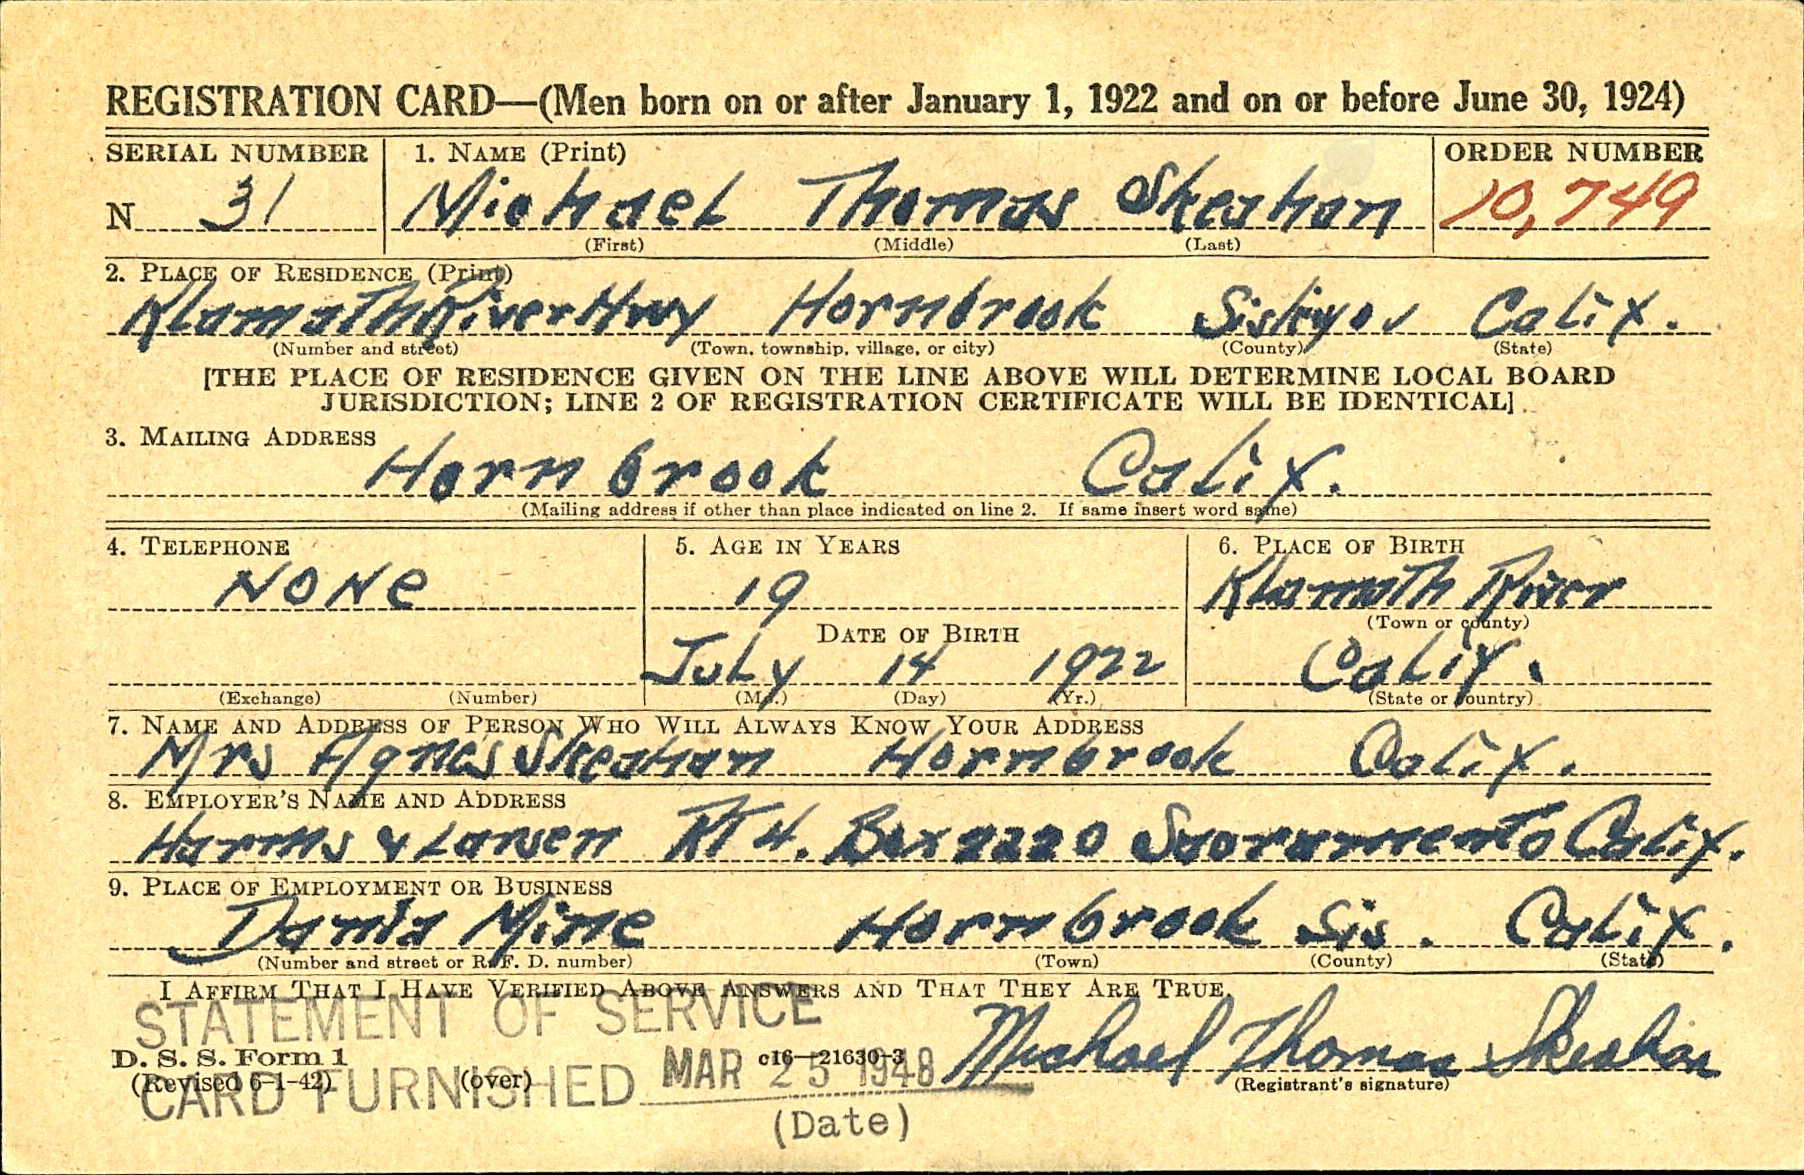 REGISTRATION CARD—(Men born on or after January 1, 1922 and on or before June 30, 1924)
SERIAL NUMBER 1. NAME (Print) ORDER NUMBER
N 31 Michael Thomas Skeahan 10,749
(First) (Middle) (Last)
2. PLACE OF RESIDENCE (Print)
Klamath River Hwy Hornbrook Siskiyou Calif.
(Number and street) (Town, township, village, or city) (County) (State)
[THE PLACE OF RESIDENCE GIVEN ON THE LINE ABOVE WILL DETERMINE LOCAL BOARD
JURISDICTION; LINE 2 OF REGISTRATION CERTIFICATE WILL BE IDENTICAL]
3. MAILING ADDRESS
Hornbrook Calif.
(Mailing address if other than place indicated on line 2. If same insert word same)
4. TELEPHONE 5. AGE IN YEARS 6. PLACE OF BIRTH
NONe 19 Klamath River
(Town or county)
DATE OF BIRTH
July 14 1922 Calif.
(Exchange) (Number) (Mo.) (Day) (Yr.) (State or country)
7. NAME AND ADDRESS OF PERSON WHO WILL ALWAYS KNOW YOUR ADDRESS
Mrs Agnes Skeahan Hornbrook Calif.
8. EMPLOYER'S NAME AND ADDRESS
Harms & Larsen RT 4. Box 2220 Sacramento Calif.
9. PLACE OF EMPLOYMENT OR BUSINESS
Mine Hornbrook Sis. Calif.
(Number and street or R. F. D. number) (Town) (County) (State)
I AFFIRM THAT I HAVE VERIFIED ABOVE ANSWERS AND THAT THEY ARE TRUE.
STATEMENT OF SERVICE
D. S. S. Form 1 c16—21630-3 Michael Thomas Skeahan
(Revised 6-1-42) (over) (Registrant's signature)
CARD FURNISHED MAR 25 1948
(Date)